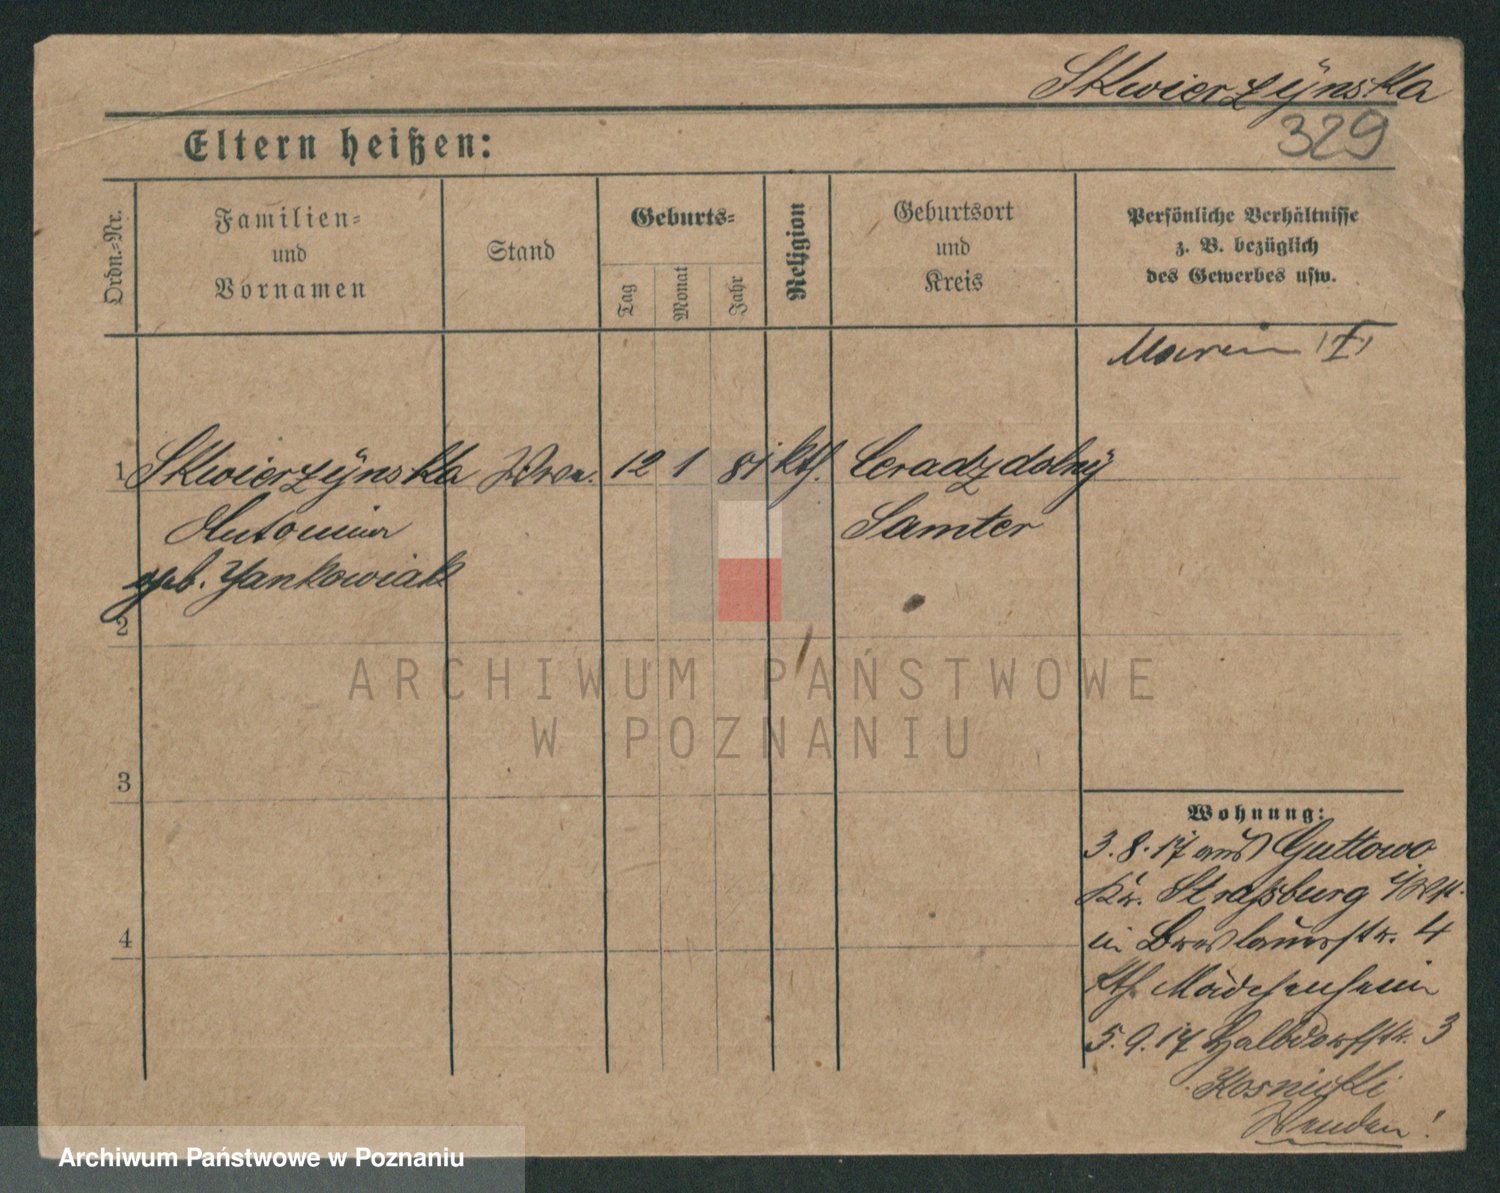 Skwierzÿnska
329
Eltern heißen:
Ordn.-Nr.
Familien-
und
Vornamen
Stand
Geburts-
Tag
Monat
Jahr
Religion
Geburtsort
und
Kreis
Persönliche Verhältnisse
z. B. bezüglich
des Gewerbes usw.
1 Skwierzÿnska Wwe. 12 1 81 kth. Ceradz dolnÿ
Antonina Samter
geb. Yankowiak
2
3
4
Wohnung:
3.8.17 aus Guttowo
Kr. Straßburg i/Wpr.
in Breslauerstr. 4
kth. Mädchenheim
5.9.17 Halbdorfstr. 3
Kosnicki
Wenden!
ARCHIWUM PAŃSTWOWE
W POZNANIU
Archiwum Państwowe w Poznaniu